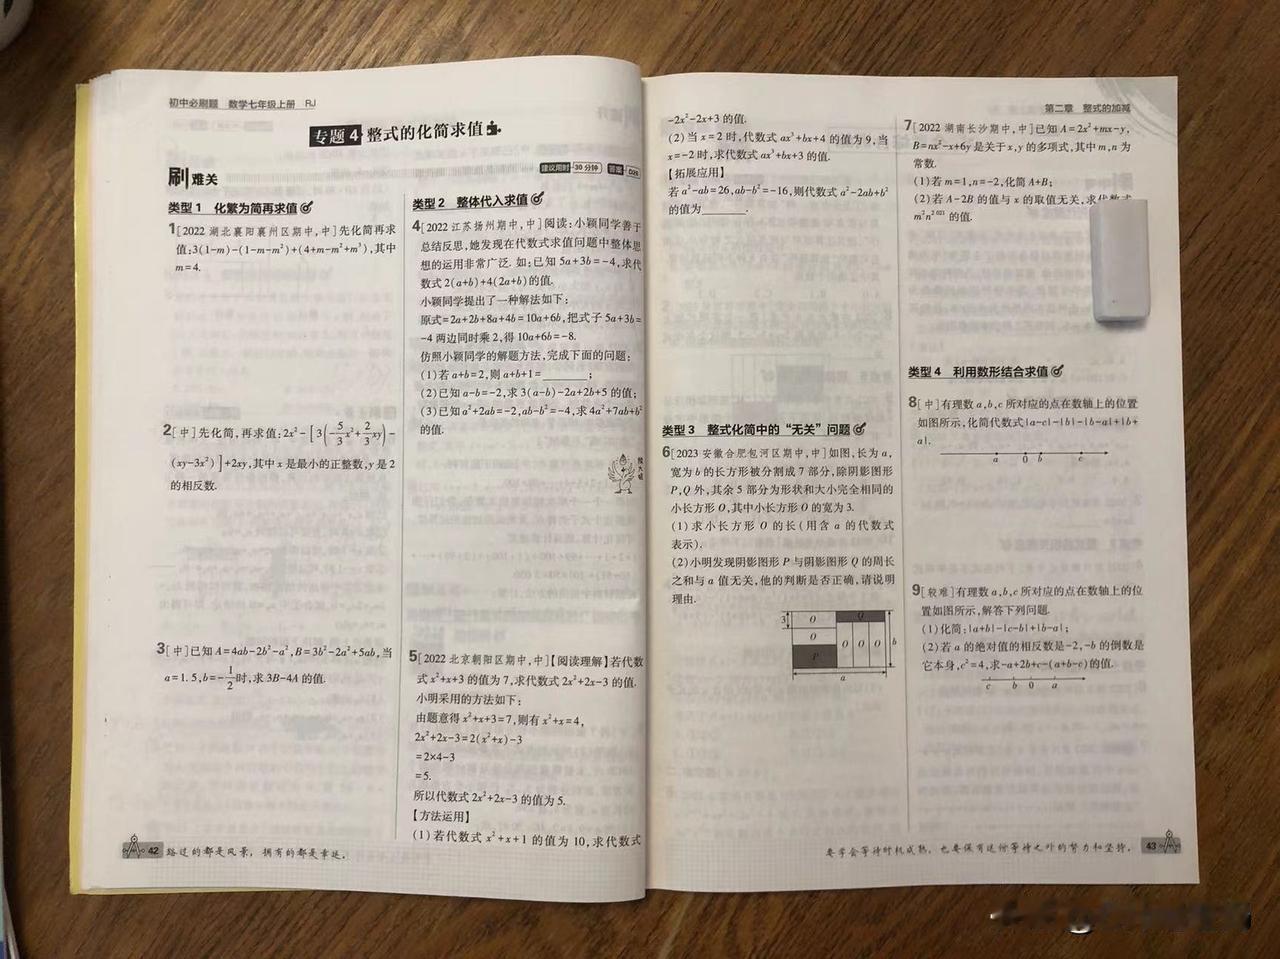 初中必刷题 数学七年级上册 RJ
专题4 整式的化简求值
刷难关
建议用时 30分钟 答案 D26
类型1 化繁为简再求值
1[2022湖北襄阳襄州区期中,中]先化简再求
值:3(1-m)-(1-m-m²)+(4+m-m²+m³),其中
m=4.
2[中]先化简,再求值:2x²-[3(-5/3x²+2/3xy)-
(xy-3x²)]+2xy,其中x是最小的正整数,y是2
的相反数.
3[中]已知A=4ab-2b²-a²,B=3b²-2a²+5ab,当
a=1.5,b=-1/2时,求3B-4A的值.
类型2 整体代入求值
4[2022江苏扬州期中,中]阅读:小颖同学善于
总结反思,她发现在代数式求值问题中整体思
想的运用非常广泛.如:已知5a+3b=-4,求代
数式2(a+b)+4(2a+b)的值.
小颖同学提出了一种解法如下:
原式=2a+2b+8a+4b=10a+6b,把式子5a+3b=
-4两边同时乘2,得10a+6b=-8.
仿照小颖同学的解题方法,完成下面的问题:
(1)若a+b=2,则a+b+1=________;
(2)已知a-b=-2,求3(a-b)-2a+2b+5的值;
(3)已知a²+2ab=-2,ab-b²=-4,求4a²+7ab+b²
的值.
5[2022北京朝阳区期中,中]【阅读理解】若代数
式x²+x+3的值为7,求代数式2x²+2x-3的值.
小明采用的方法如下:
由题意得x²+x+3=7,则有x²+x=4,
2x²+2x-3=2(x²+x)-3
=2×4-3
=5.
所以代数式2x²+2x-3的值为5.
【方法运用】
(1)若代数式x²+x+1的值为10,求代数式
42 路过的都是风景,拥有的都是幸运.
第二章 整式的加减
-2x²-2x+3的值.
(2)当x=2时,代数式ax³+bx+4的值为9,当
x=-2时,求代数式ax³+bx+3的值.
【拓展应用】
若a²-ab=26,ab-b²=-16,则代数式a²-2ab+b²
的值为________.
类型3 整式化简中的“无关”问题
6[2023安徽合肥包河区期中,中]如图,长为a,
宽为b的长方形被分割成7部分,除阴影图形
P,Q外,其余5部分为形状和大小完全相同的
小长方形O,其中小长方形O的宽为3.
(1)求小长方形O的长(用含a的代数式
表示).
(2)小明发现阴影图形P与阴影图形Q的周长
之和与a值无关,他的判断是否正确,请说明
理由.
3 O Q
O
P O O O b
a
7[2022湖南长沙期中,中]已知A=2x²+mx-y,
B=nx²-x+6y是关于x,y的多项式,其中m,n为
常数.
(1)若m=1,n=-2,化简A+B;
(2)若A-2B的值与x的取值无关,求代数式
m²n²⁰²¹的值.
类型4 利用数形结合求值
8[中]有理数a,b,c所对应的点在数轴上的位置
如图所示,化简代数式|a-c|-|b|-|b-a|+|b+
a|.
a 0 b c
9[较难]有理数a,b,c所对应的点在数轴上的位
置如图所示,解答下列问题.
(1)化简:|a+b|-|c-b|+|b-a|;
(2)若a的绝对值的相反数是-2,-b的倒数是
它本身,c²=4,求-a+2b+c-(a+b-c)的值.
c b 0 a
要学会等待时机成熟,也要保有这份等待之外的努力和坚持. 43